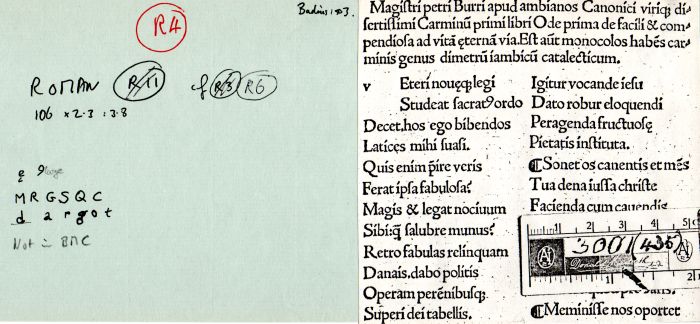 Badius 1503.
R4
ROMAN R11 cf R3 R6
106 x 2·3 : 3·8
ę 9
M R G S Q C
d a r g o t
Not in BMC
Magistri petri Burri apud ambianos Canonici viriq; di
sertissimi Carminū primi libri Ode prima de facili & com
pendiosa ad vitā ęternā via. Est aūt monocolos habēs car
minis genus dimetrū iambicū catalecticum.
v Eteri nouęq; legi
Studeat sacrat9ordo
Decet, hos ego bibendos
Laticęs mihi suasi.
Quis enim p̄ire veris
Ferat ipsa fabulosa?
Magis & legat nociuum
Sibiq; salubre munus?
Retro fabulas relinquam
Danais, dabo politis
Operam perēnibusq;
Superi dei tabellis.
Igitur vocande iesu
Dato robur eloquendi
Peragenda fructuosę
Pietatis instituta.
¶Sonet os canentis et mēs
Tua dena iussa christe
Facienda cum cauendis
1 2 3 4 5 c
3001 (435)
1 2
¶Meminisse nos oportet